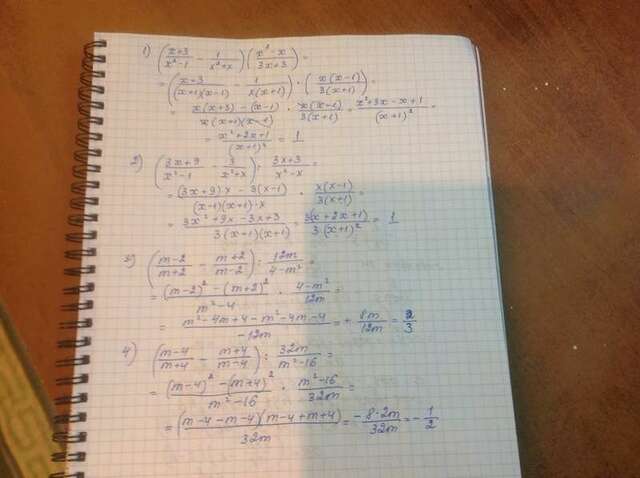 1) ( (x+3)/(x²-1) - 1/(x²+x) ) ( (x²-x)/(3x+3) ) =
= ( (x+3)/((x+1)(x-1)) - 1/(x(x+1)) ) · ( x(x-1)/(3(x+1)) ) =
= (x(x+3) - (x-1))/(x(x+1)(x-1)) · x(x-1)/(3(x+1)) = (x²+3x-x+1)/(x+1)² =
= (x²+2x+1)/(x+1)² = 1
2) ( (3x+9)/(x²-1) - 3/(x²+x) ) : (3x+3)/(x²-x) =
= ((3x+9)x - 3(x-1))/((x-1)(x+1)·x) · x(x-1)/(3(x+1)) =
= (3x²+9x-3x+3)/(3(x+1)(x+1)) = 3(x+2x+1)/(3(x+1)²) = 1
3) ( (m-2)/(m+2) - (m+2)/(m-2) ) : 12m/(4-m²) =
= ((m-2)² - (m+2)²)/(m²-4) · (4-m²)/12m =
= (m²-4m+4-m²-4m-4)/(-12m) = + 8m/12m = 2/3
4) ( (m-4)/(m+4) - (m+4)/(m-4) ) : 32m/(m²-16) =
= ((m-4)² - (m+4)²)/(m²-16) · (m²-16)/32m =
= (m-4-m-4)(m-4+m+4)/32m = -8·2m/32m = -1/2